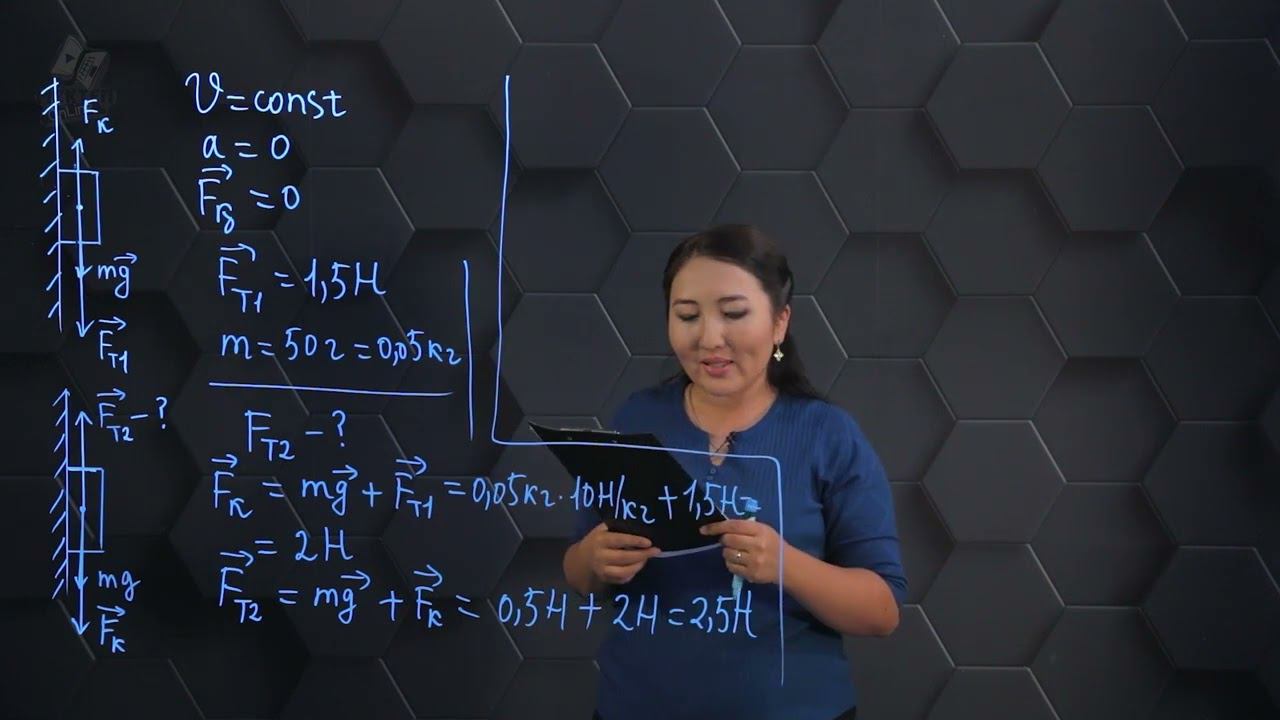 F⃗к
mg⃗
F⃗т1
F⃗т2 – ?
mg
F⃗к
υ = const
a = 0
F⃗қ = 0
F⃗т1 = 1,5Н
m = 50г = 0,05кг
Fт2 – ?
F⃗к = mg⃗ + F⃗т1 = 0,05кг · 10Н/кг + 1,5Н =
= 2Н
F⃗т2 = mg⃗ + F⃗к = 0,5Н + 2Н = 2,5Н